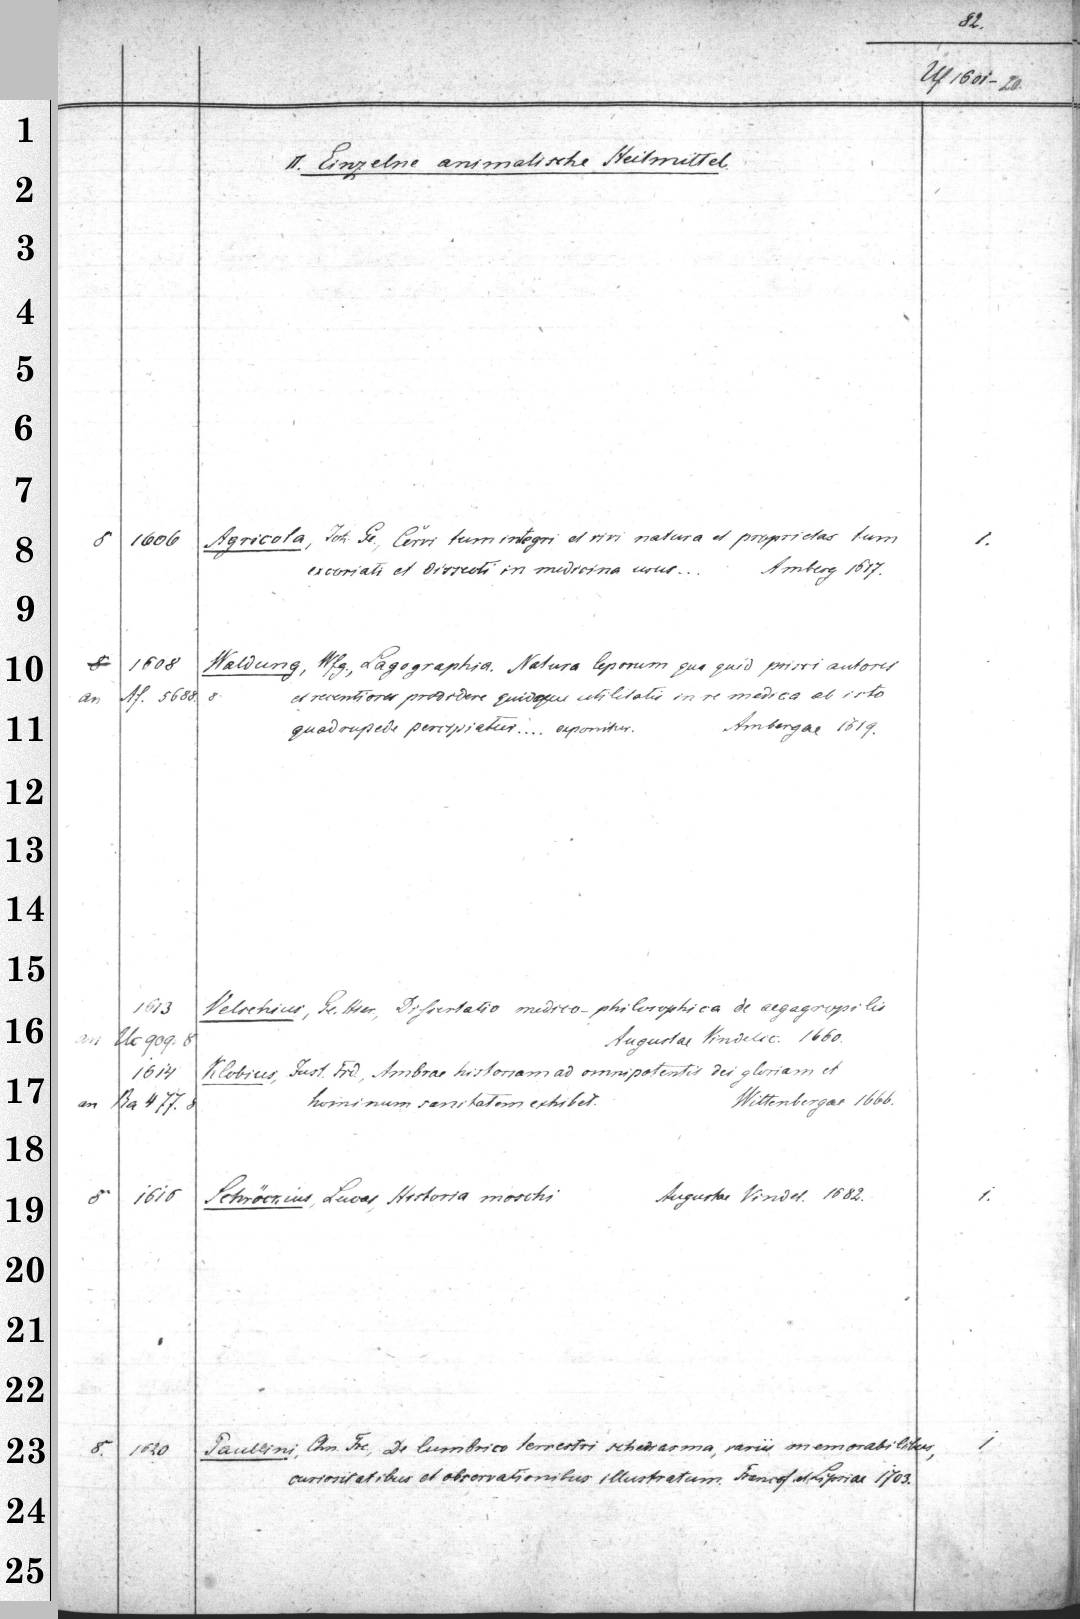 82.
Uf 1601-20.
II. Einzelne animalische Heilmittel.
8 1606 Agricola, Joh. Ge., Cervi tum integri et vivi natura et proprietas tum 1.
excoriati et dissecti in medicina usus... Amberg 1617.
8 1608 Waldung, Wfg., Lagographia. Natura leporum qua quid prisci autores
an Af. 5688. 8 et recentiores prodidere quidque utilitatis in re medica ab isto
quadrupede percipiatur.... exponitur. Ambergae 1619.
1613 Velschius, Ge. Hier., Dissertatio medico-philosophica de aegagropilis
an Uc 909. 8 Augustae Vindelic. 1660.
1614 Klobius, Just. Frd., Ambrae historiam ad omnipotentis dei gloriam et
an Ba 477. 8 hominum sanitatem exhibet. Wittenbergae 1666.
8 1616 Schröckius, Lucas, Historia moschi Augustae Vindel. 1682. 1.
8. 1620 Paullini, Chn. Frc., De lumbrico terrestri schediasma, variis memorabilibus, 1
curiositatibus et observationibus illustratum. Francof. et Lipsiae 1703.
1
2
3
4
5
6
7
8
9
10
11
12
13
14
15
16
17
18
19
20
21
22
23
24
25